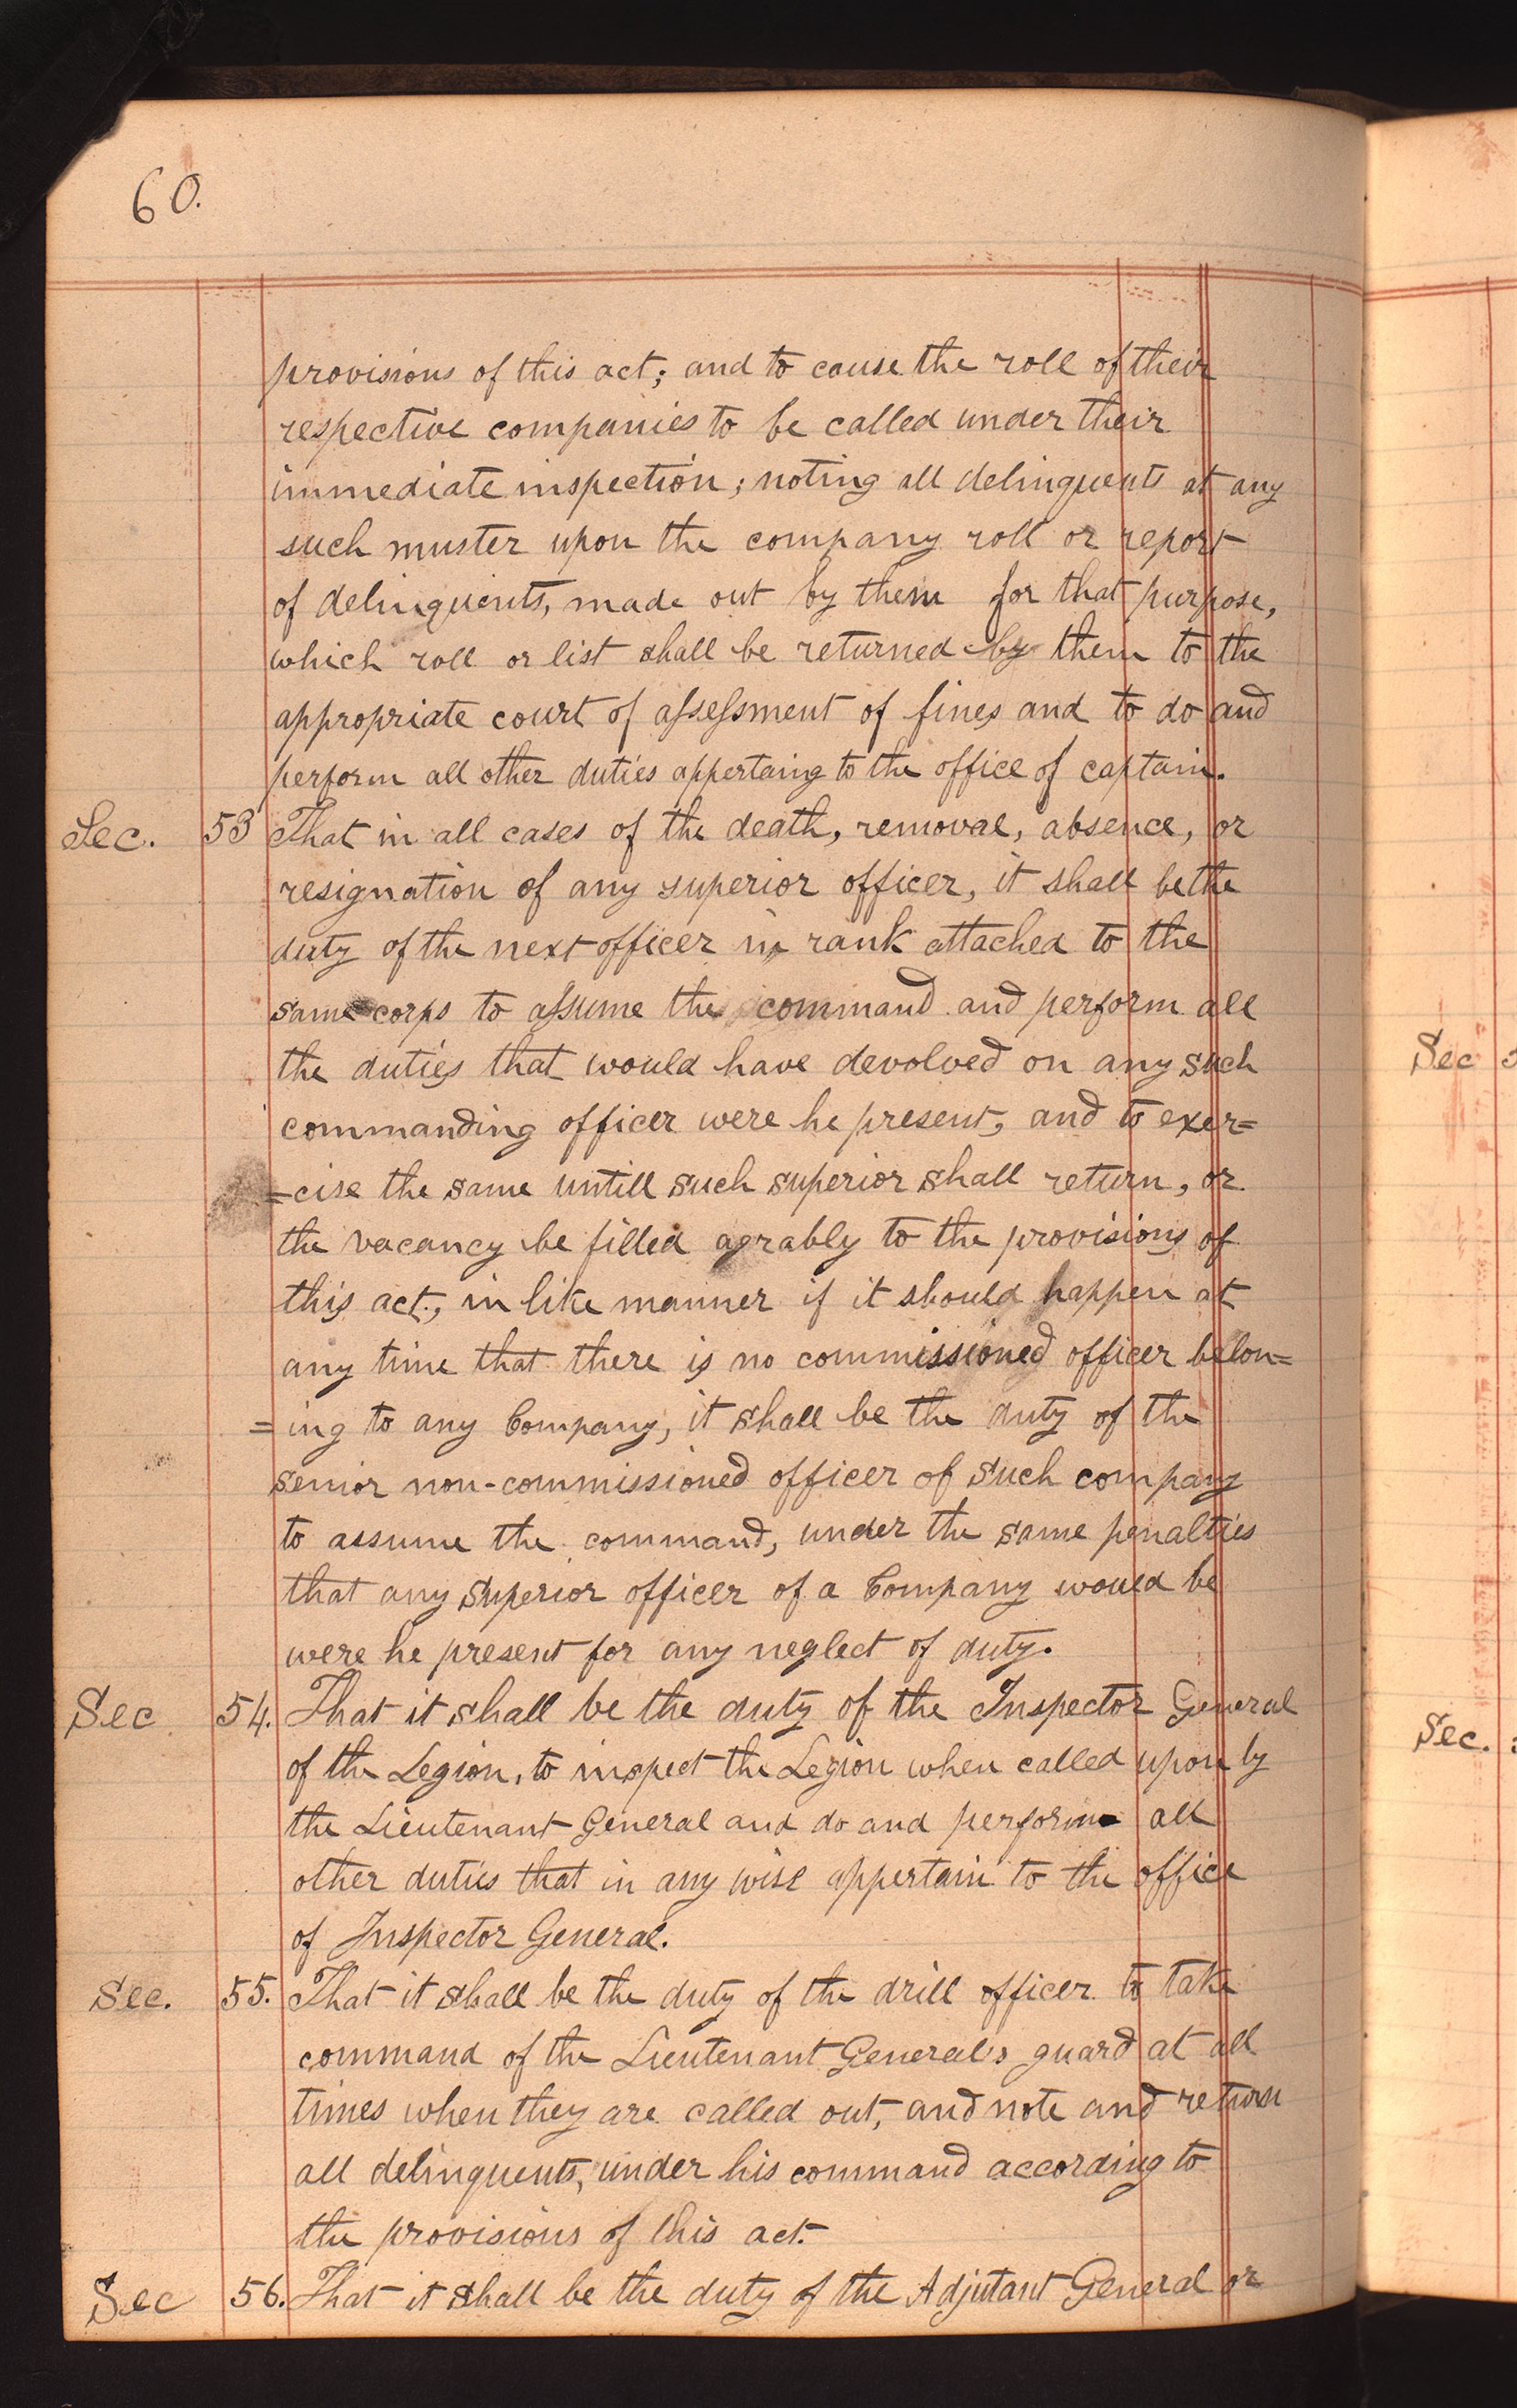 60.
provisions of this act; and to cause the roll of their
respective companies to be called under their
immediate inspection; noting all delinquents at any
such muster upon the company roll or report
of delinquents, made out by them for that purpose,
which roll or list shall be returned by them to the
appropriate court of assessment of fines and to do and
perform all other duties appertaing to the office of captain.
Sec. 53 That in all cases of the death, removal, absence, or
resignation of any superior officer, it shall be the
duty of the next officer in rank attached to the
same corps to assume the command and perform all
the duties that would have devolved on any such
commanding officer were he present, and to exer=
=cise the same untill such superior shall return, or
the vacancy be filled agrably to the provisions of
this act, in like manner if it should happen at
any time that there is no commissioned officer belon=
=ing to any Company, it shall be the duty of the
senior non-commissioned officer of such company
to assume the command, under the same penalties
that any superior officer of a Company would be
were he present for any neglect of duty.
Sec 54. That it shall be the duty of the Inspector General
of the Legion, to inspect the Legion when called upon by
the Lieutenant General and do and perform all
other duties that in any wise appertain to the office
of Inspector General.
Sec. 55. That it shall be the duty of the drill officer to take
command of the Lieutenant General's guard at all
times when they are called out, and note and return
all delinquents, under his command according to
the provisions of this act.
Sec 56. That it shall be the duty of the Adjutant General or
Sec
Sec.